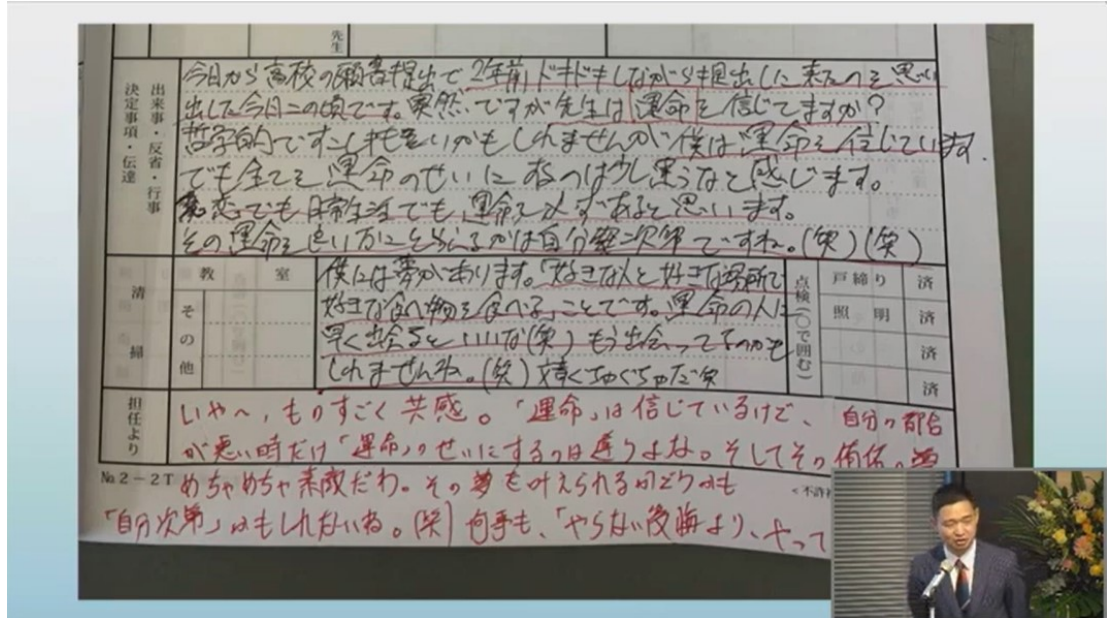 先生
出来事・反省・行事
決定事項・伝達
今日から高校の願書提出で2年前ドキドキしながら提出しに来たのを思い
出した今日この頃です。突然ですが先生は運命を信じてますか?
哲学的ですこしキモいかもしれませんが僕は運命を信じています。
でも全てを運命のせいにするのは少し違うなと感じます。
恋でも日常生活でも運命は必ずあると思います。
その運命を良い方にとらえるかは自分次第ですね。(笑)(笑)
清掃
教室
その他
僕には夢があります。「好きな人と好きな場所で
好きな食べ物を食べる」ことです。運命の人に
早く出会えるといいな(笑)もう出会ってるのかも
しれませんね。(笑)文章ぐちゃぐちゃだ笑
点検(○で囲む)
戸締り 済
照明 済
済
済
担任より
いや〜、ものすごく共感。「運命」は信じているけど、自分の都合
が悪い時だけ「運命」のせいにするのは違うよな。そしてその
No.2-2T
めちゃめちゃ素敵だわ。その夢を叶えられるかどうかも
「自分次第」かもしれないね。(笑)何事も、「やらない後悔より、やって